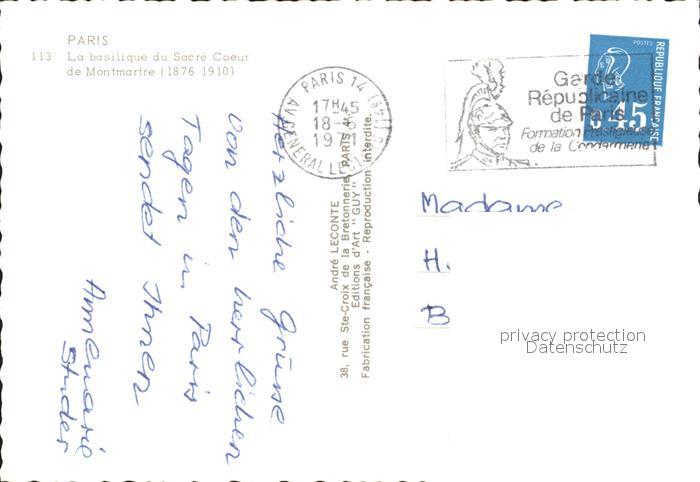 PARIS
113 La basilique du Sacré Coeur
de Montmartre (1876 1910)
Herzliche Grüsse
von den herrlichen
Tagen in Paris
sendet Ihnen
Annemarie
Studer
André LECONTE
38, rue Ste-Croix de la Bretonnerie, PARIS 4e
Editions d'Art "GUY"
Fabrication française - Reproduction interdite.
PARIS 14
17H45
18-
19
AV. GENERAL LECLERC
Garde
Républicaine
de Paris
Formation Prestigieuse
de la Gendarmerie
POSTES
REPUBLIQUE FRANÇAISE
0.45
Madame
H.
B
privacy protection
Datenschutz